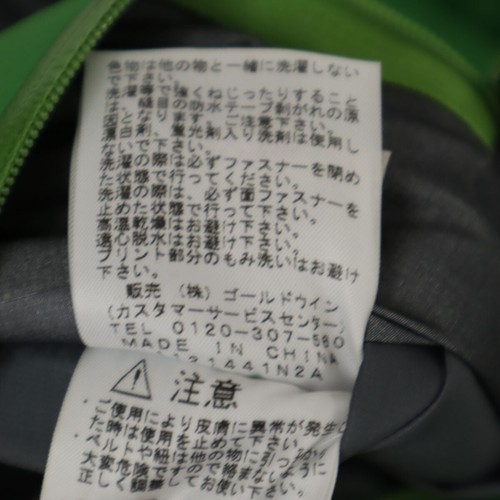 色物は他の物と一緒に洗濯しない
で下さい。
洗濯等で強くねじったりすること
は、縫目の防水テープ剥がれの原
因となります。ご注意下さい。
漂白剤、蛍光剤入り洗剤は使用し
ないで下さい。
洗濯の際は必ずファスナーを閉め
た状態で行ってください。
洗濯の際は、必ず面ファスナーを
止めた状態で行って下さい。
高温乾燥はお避け下さい。
遠心脱水はお避け下さい。
プリント部分のもみ洗いはお避け
下さい。
販売 (株) ゴールドウイン
(カスタマーサービスセンター)
TEL 0120-307-560
MADE IN CHINA
1441N2A
注意
・ご使用により皮膚に異常が発生
た時は使用を止めて下さい。
・ベルトや紐は他の物に引っ
大変危険ですので絡まないように
正しく調整してお使い下さい。